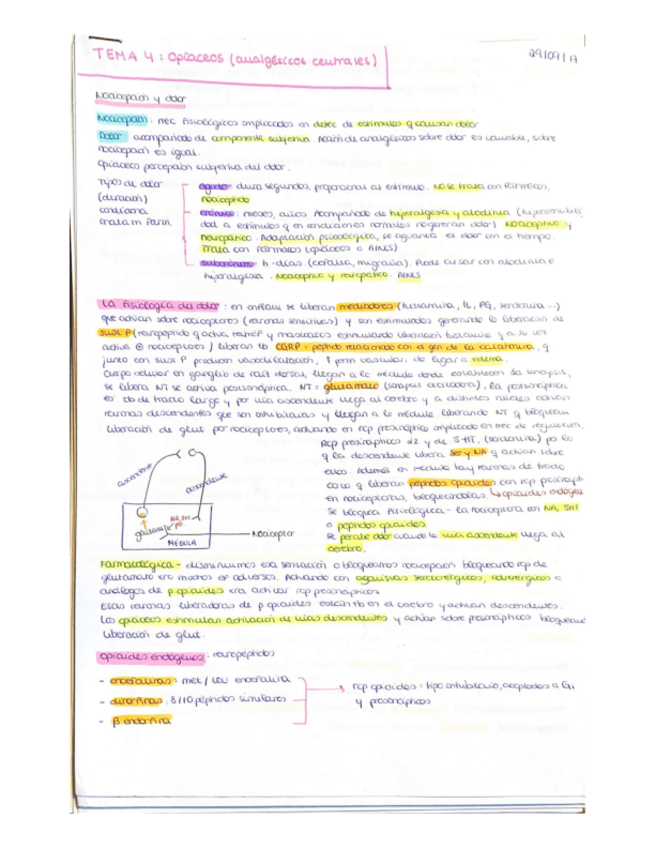 TEMA 4: Opiáceos (analgésicos centrales)
29/09/17
Nocicepción y dolor
Nocicepción: mec fisiológicos implicados en detec de estímulos q causan dolor
Dolor acompañado de componente subjetiva. Acción de analgésicos sobre dolor es variable, sobre
nocicepción es igual.
Opiáceos percepción subjetiva del dolor.
Tipos de dolor
(duración)
condiciona
tratam farm.
agudo: dura segundos, proporcional al estímulo. NO se trata con fármacos.
nociceptivo
crónico: meses, años. Acompañado de hiperalgesia y alodinia (hipersensibili
dad a estímulos q en condiciones normales no generan dolor). Nociceptivo y
neuropático. Adaptación psicológica, se aguanta el dolor con el tiempo.
Trata con fármacos (opiáceos o AINES)
subcrónico: h-días. (cefalea, migraña). Puede cursar con alodinia e
hiperalgesia. Nociceptivo y neuropático. AINES
La fisiología del dolor: en inflam se liberan mediadores (histamina, IL, PG, serotonina...)
que actúan sobre nociceptores (neuronas sensitivas) y son estimulados generando la liberación de
sust P (neuropéptido q activa y mastocitos estimulando liberación histamina q a su vez
activa ⊕ nociceptores) / liberan tb CGRP: péptido relacionado con el gen de la calcitonina, q
junto con sust P producen vasodilatación, ↑ perm vascular. da lugar a edema.
Cuerpo celular en ganglio de raíz dorsal, llegan a la médula donde establecen la sinapsis,
se libera NT se activa postsináptica. NT = glutamato (sinapsis excitadora), la postsináptica
es de tracto largo y por vía ascendente llega al cerebro y a distintos núcleos activan
neuronas descendentes que son inhibitorias y llegan a la médula liberando NT q bloquean
liberación de glut por nociceptores, actuando en rcp presináptico implicado en mec de regulación.
Rcp presinápticos α2 y de 5-HT, (serotonina) pq lo
q la descendente libera Ser y NA q actúan sobre
ellos. Además en médula hay neuronas de tracto
corto q liberan péptidos opioides con rcp presinápt
en nociceptores, bloqueándolas. ↳ opioides endógenos
Se bloquea fisiológica- la nociceptora en NA, 5HT
o péptidos opioides
Se percibe dolor cuando la vía ascendente llega al
cerebro.
ascendente
descendente
glutamato
NA, 5HT
PO
MÉDULA
Nociceptor
Farmacológica - disminuimos esa sensación o bloqueamos nocicepción bloqueando rcp de
glutamato pro muchos ef adversos. Actuando con agonistas serotonérgicos, adrenérgicos o
análogos de p opioides pra activar rcp presinápticos
Esas neuronas liberadoras de p opioides están tb en el cerebro y activan descendentes.
Los opiáceos estimulan activación de vías descendentes y actúan sobre presinápticos bloqueando
liberación de glut.
Opioides endógenos: neuropéptidos
- encefalinas: met / leu encefalina
- dinorfinas: 8/10 péptidos similares
- β endorfina
rcp opioides = tipo inhibitorio, acoplados a Gi
y presinápticos